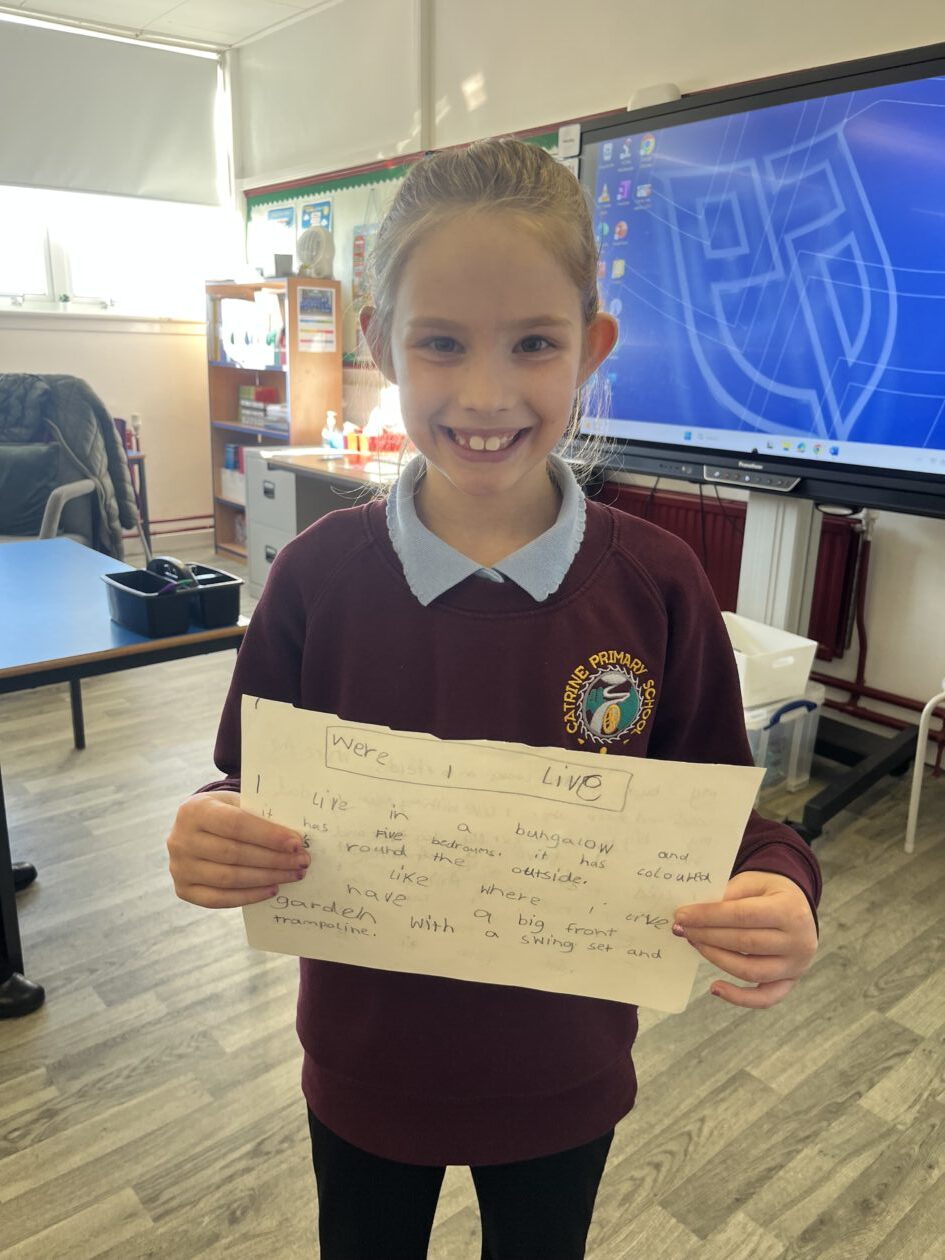 CATRINE PRIMARY SCHOOL
Were I Live
I Live in a bungalow and
it has Five bedrooms. it has coloured
round the outside.
Like where i Live
have a big front
garden with a swing set and
trampoline.